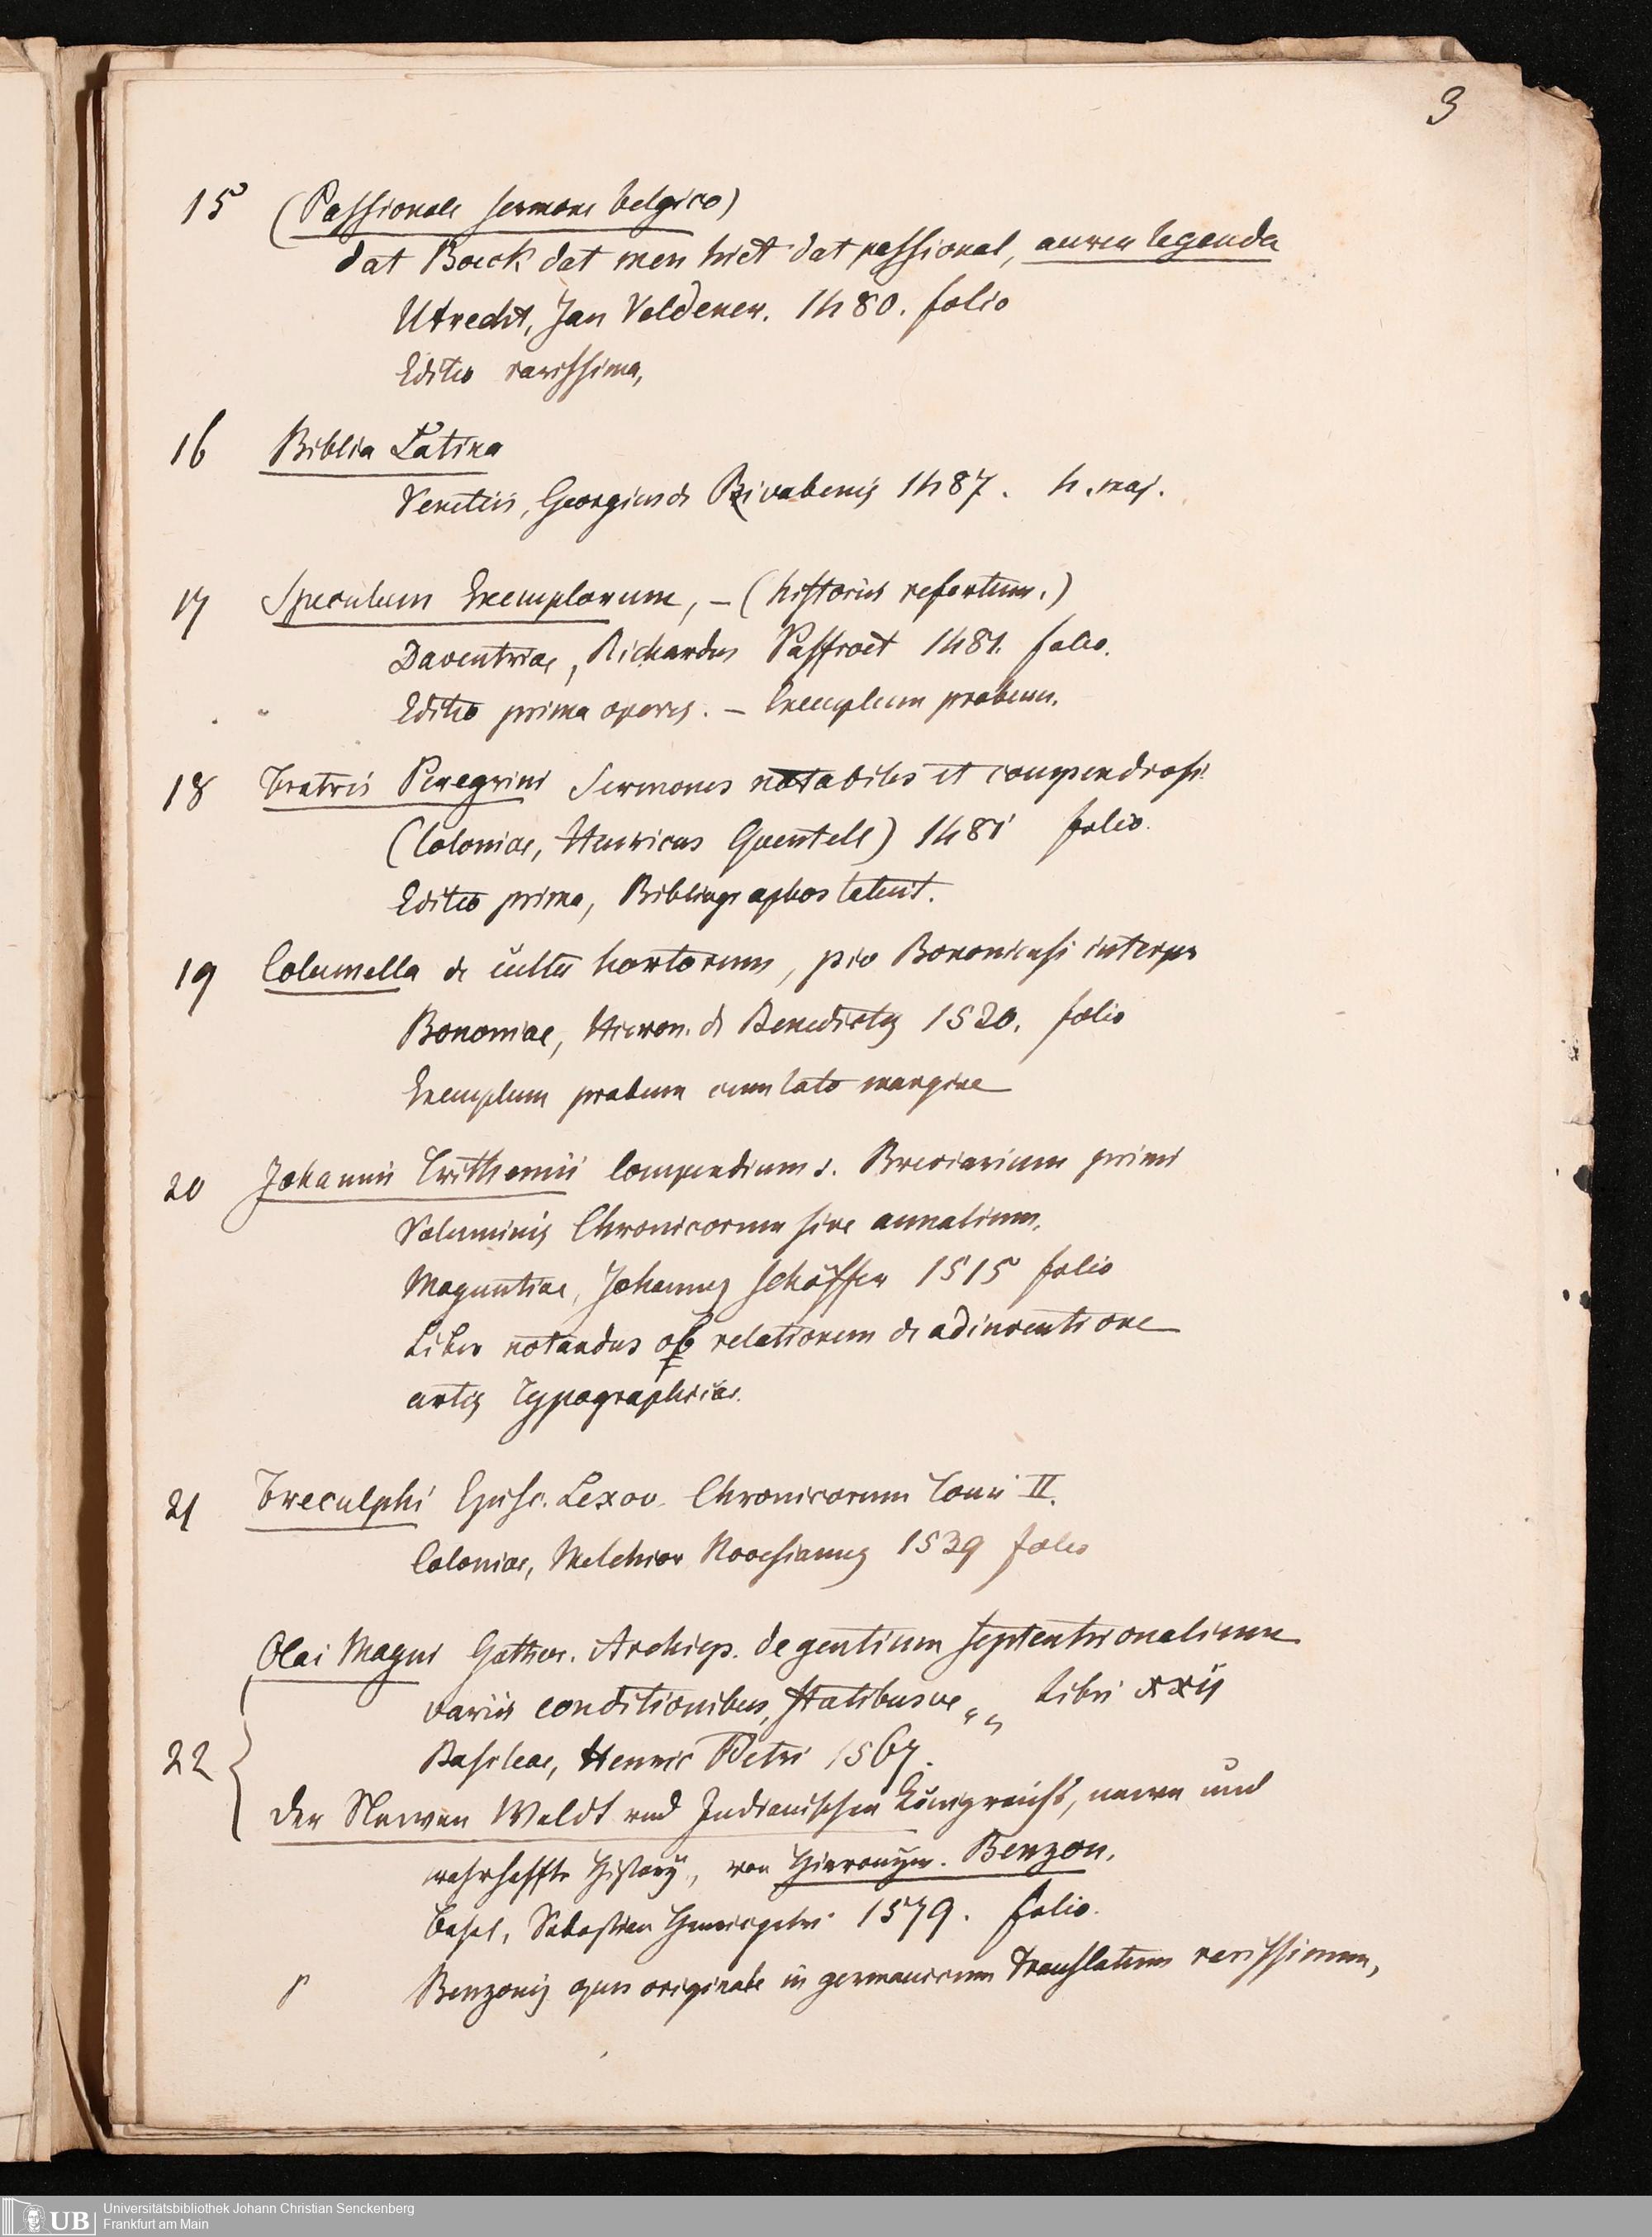 3
15 (Passionale sermone belgico)
dat Boeck dat men hiet dat passional, aurea legenda
Utrecht, Jan Veldener. 1480. folio
Editio rarissima,
16 Biblia Latina
Venetiis, Georgius de Rivabenis 1487. 4. maj.
17 Speculum Exemplorum, – (historiis refertum.)
Daventriae, Richardus Paffroet 1481. folio.
Editio prima operis. – Exemplum probum.
18 Fratris Peregrini Sermones notabiles et compendiosi
(Coloniae, Henricus Quentell) 1481 folio.
Editio prima, Bibliographos latuit.
19 Columella de cultu hortorum, pio Bononiensi interpr
Bononiae, Hieron. de Benedictis 1520. folio
Exemplum probum cum lato margine
20 Johannis Trithemii Compendium s. Breviarium primi
Voluminis Chronicorum sive annalium.
Maguntiae, Johannes Schöffer 1515 folio
Liber notandus ob relationem de adinventione
artis Typographicae.
21 Freculphi Episc. Lexov. Chronicorum Tomi II.
Coloniae, Melchior Novesianus 1539 folio
Olai Magni Gothor. Archiep. de gentium septentrionalium
variis conditionibus, statibusve „ „ Libri xxij
22 Basileae, Henric Petri 1567.
Der Newen Weldt und Indianischen Königreichs, newe und
wahrhaffte History, von Hieronym. Benzon.
Basel, Sebastian Henricpetri 1579. folio.
Benzonis opus originale in germanicum translatum rarissimum,
UB Universitätsbibliothek Johann Christian Senckenberg
Frankfurt am Main